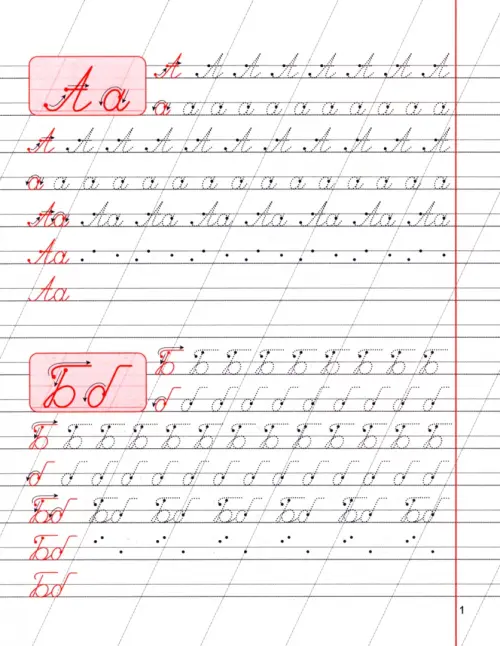 А а
А А А А А А А А
а а а а а а а а а а а
А А А А А А А А А А А
а а а а а а а а а а а а а а а
Аа Аа Аа Аа Аа Аа Аа Аа
Аа
Аа
Б б
Б Б Б Б Б Б Б Б Б
б б б б б б б б б б б
Б Б Б Б Б Б Б Б Б Б Б Б Б
б б б б б б б б б б б б б б б
Бб Бб Бб Бб Бб Бб Бб
Бб
Бб
1